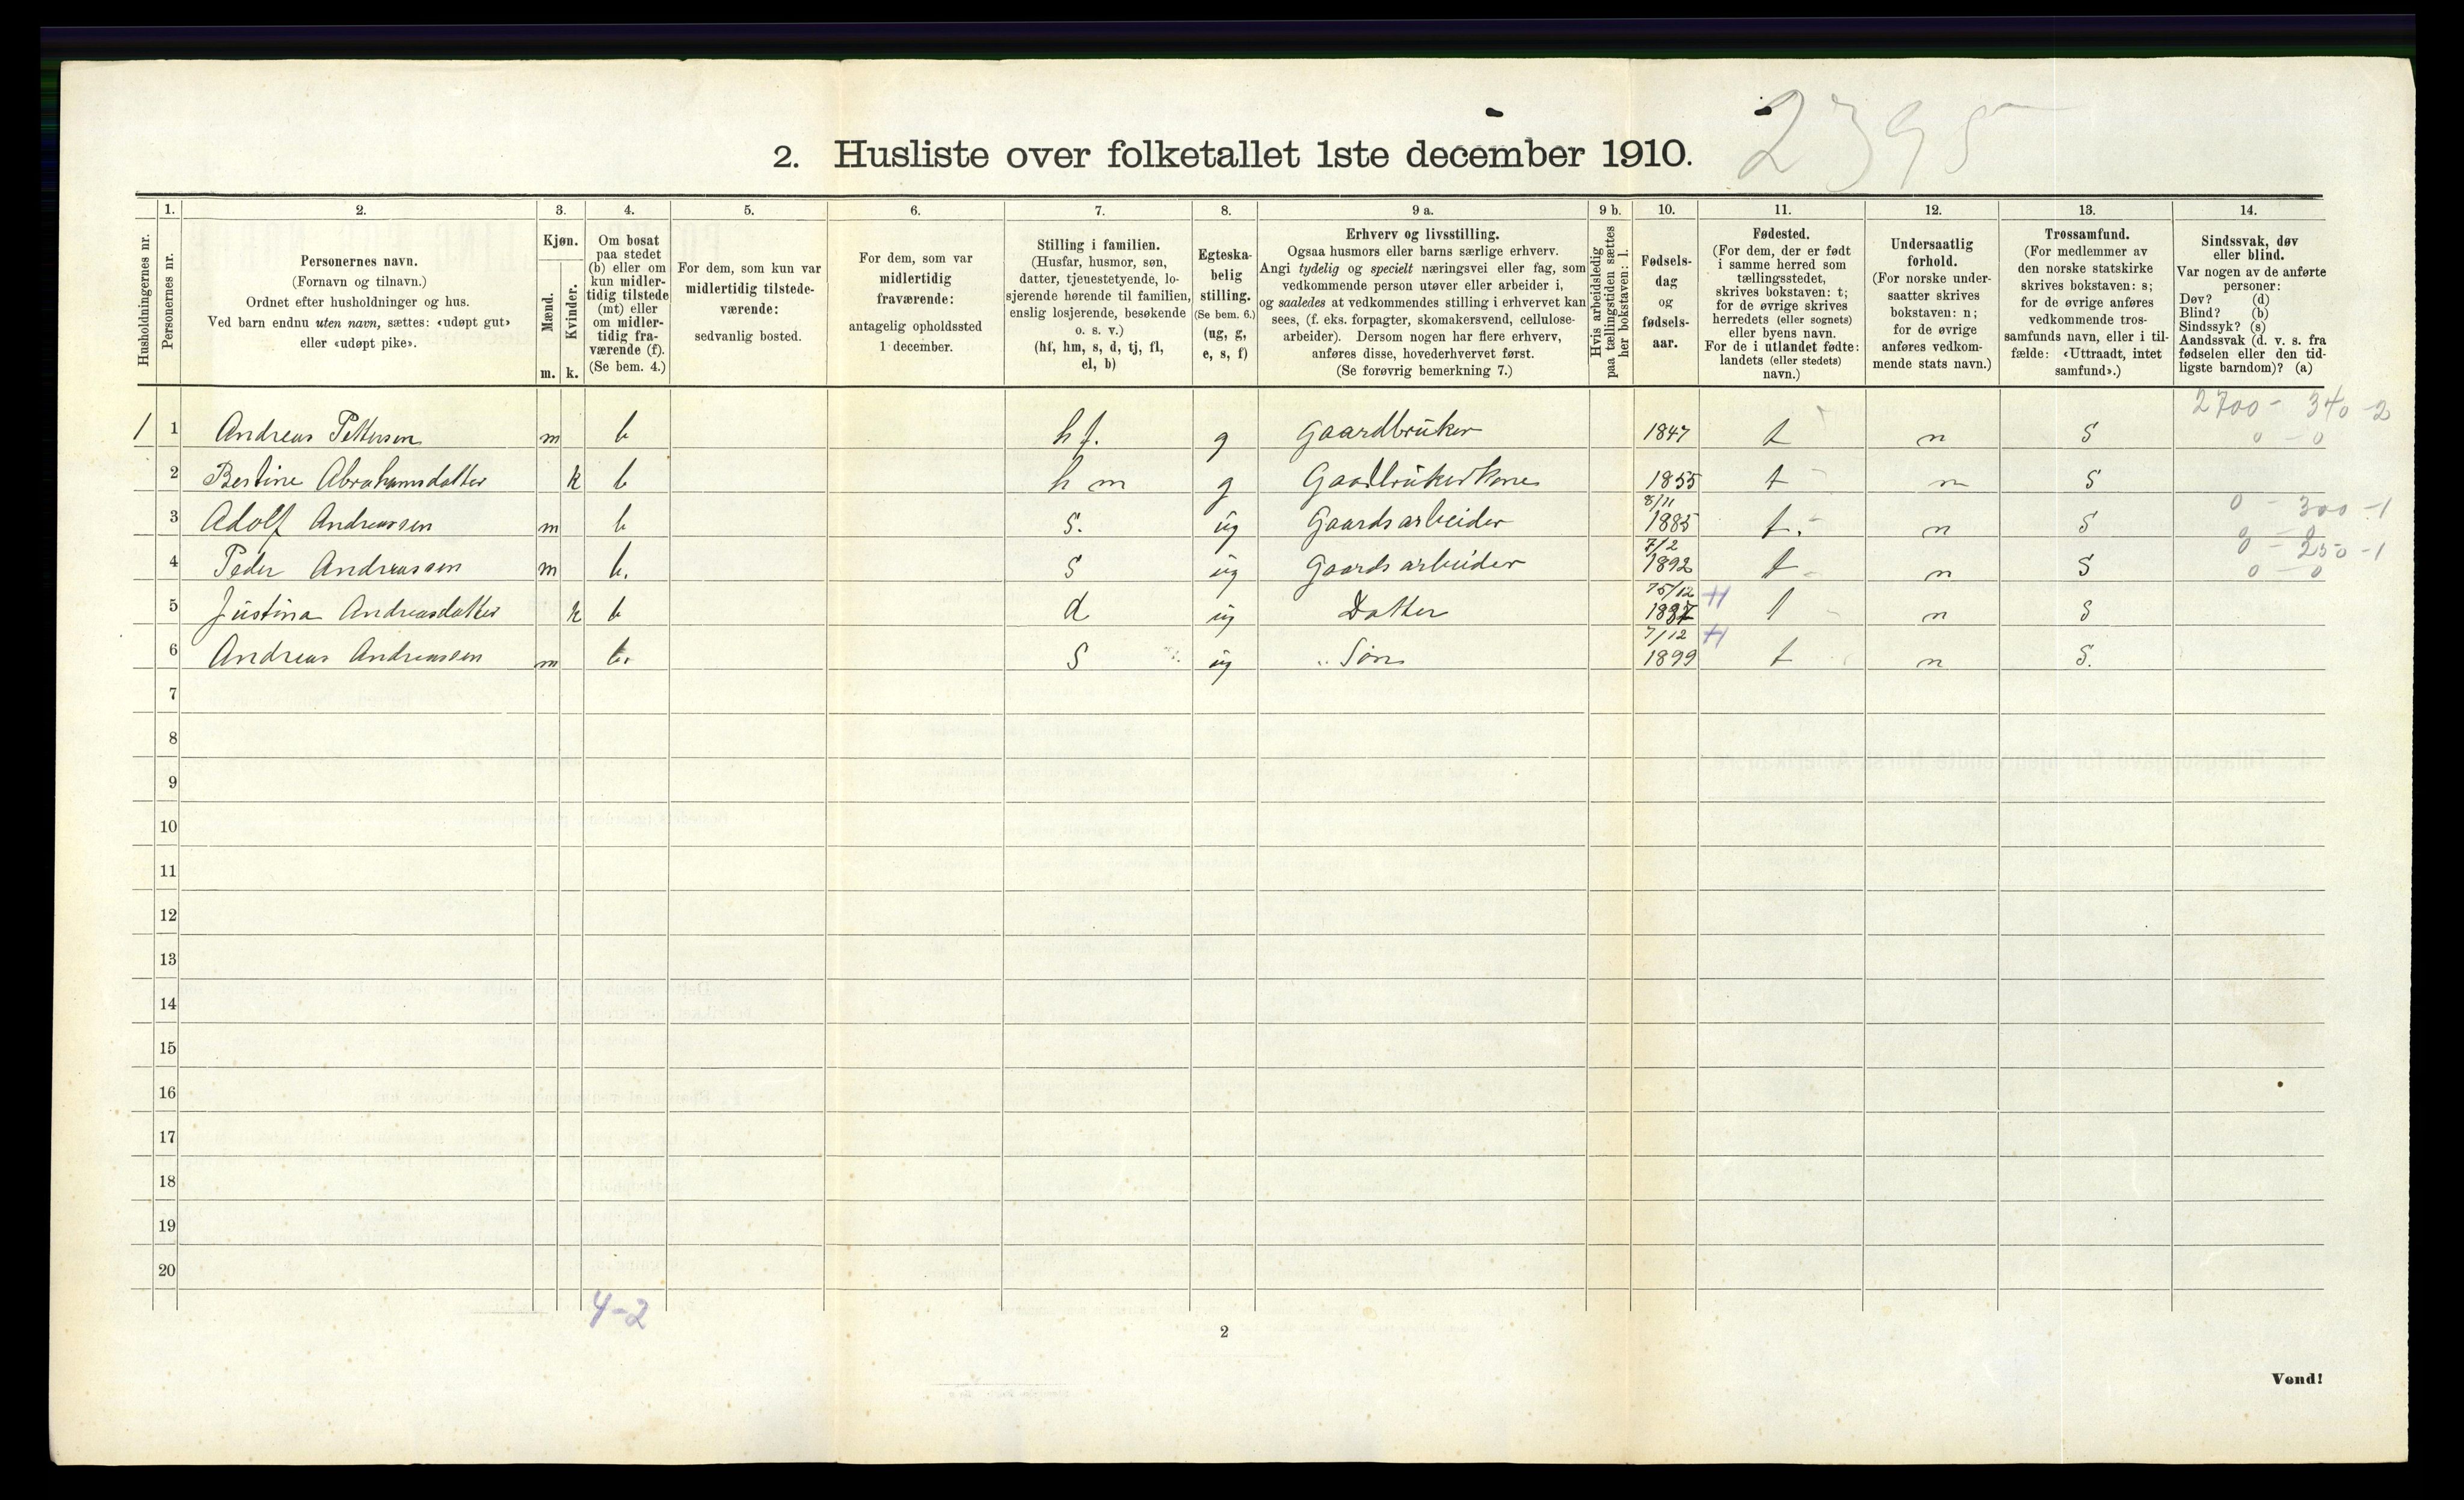 2395
2. Husliste over folketallet 1ste december 1910.
Husholdningernes nr.
1.
Personernes nr.
2.
Personernes navn.
(Fornavn og tilnavn.)
Ordnet efter husholdninger og hus.
Ved barn endnu uten navn, sættes: «udøpt gut»
eller «udøpt pike».
3.
Kjøn.
Mænd.
Kvinder.
m. k.
4.
Om bosat
paa stedet
(b) eller om
kun midler-
tidig tilstede
(mt) eller
om midler-
tidig fra-
værende (f).
(Se bem. 4.)
5.
For dem, som kun var
midlertidig tilstede-
værende:
sedvanlig bosted.
6.
For dem, som var
midlertidig
fraværende:
antagelig opholdssted
1 december.
7.
Stilling i familien.
(Husfar, husmor, søn,
datter, tjenestetyende, lo-
sjerende hørende til familien,
enslig losjerende, besøkende
o. s. v.)
(hf, hm, s, d, tj, fl,
el, b)
8.
Egteska-
belig
stilling.
(Se bem. 6.)
(ug, g,
e, s, f)
9 a.
Erhverv og livsstilling.
Ogsaa husmors eller barns særlige erhverv.
Angi tydelig og specielt næringsvei eller fag, som
vedkommende person utøver eller arbeider i,
og saaledes at vedkommendes stilling i erhvervet kan
sees, (f. eks. forpagter, skomakersvend, cellulose-
arbeider). Dersom nogen har flere erhverv,
anføres disse, hovederhvervet først.
(Se forøvrig bemerkning 7.)
9 b.
Hvis arbeidsledig
paa tællingstiden sættes
her bokstaven: l.
10.
Fødsels-
dag
og
fødsels-
aar.
11.
Fødested.
(For dem, der er født
i samme herred som
tællingsstedet,
skrives bokstaven: t;
for de øvrige skrives
herredets (eller sognets)
eller byens navn.
For de i utlandet fødte:
landets (eller stedets)
navn.)
12.
Undersaatlig
forhold.
(For norske under-
saatter skrives
bokstaven: n;
for de øvrige
anføres vedkom-
mende stats navn.)
13.
Trossamfund.
(For medlemmer av
den norske statskirke
skrives bokstaven: s;
for de øvrige anføres
vedkommende tros-
samfunds navn, eller i til-
fælde: «Uttraadt, intet
samfund».)
14.
Sindssvak, døv
eller blind.
Var nogen av de anførte
personer:
Døv? (d)
Blind? (b)
Sindssyk? (s)
Aandssvak (d. v. s. fra
fødselen eller den tid-
ligste barndom)? (a)
2700 - 340 - 2
1 1 Andreas Pettersen m b hf. g Gaardbruker 1847 t n S 0 - 0
2 Bertine Abrahamsdatter k b hm g Gaardbrukerkone 1855 t n S
3 Adolf Andreassen m b S. ug Gaardsarbeider 8/11 1885 t. n S 0 - 300 - 1
0 - 0
4 Peder Andreassen m b. S ug Gaardsarbeider 7/2 1892 t n S 0 - 250 - 1
0 - 0
5 Justina Andreasdatter k b d ug Datter 15/12 t n S
6 Andreas Andreassen m b. S ug Søn 7/12 1899 t n S.
7
8
9
10
11
12
13
14
15
16
17
18
19
20
4-2
2
Vend!